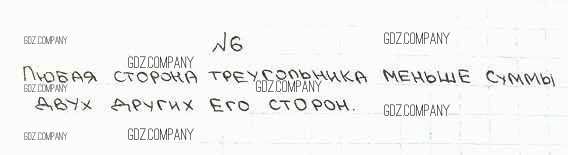 №6
GDZ.COMPANY GDZ.COMPANY
GDZ.COMPANY
Любая сторона треугольника меньше суммы
GDZ.COMPANY GDZ.COMPANY
двух других его сторон.
GDZ.COMPANY
GDZ.COMPANY GDZ.COMPANY